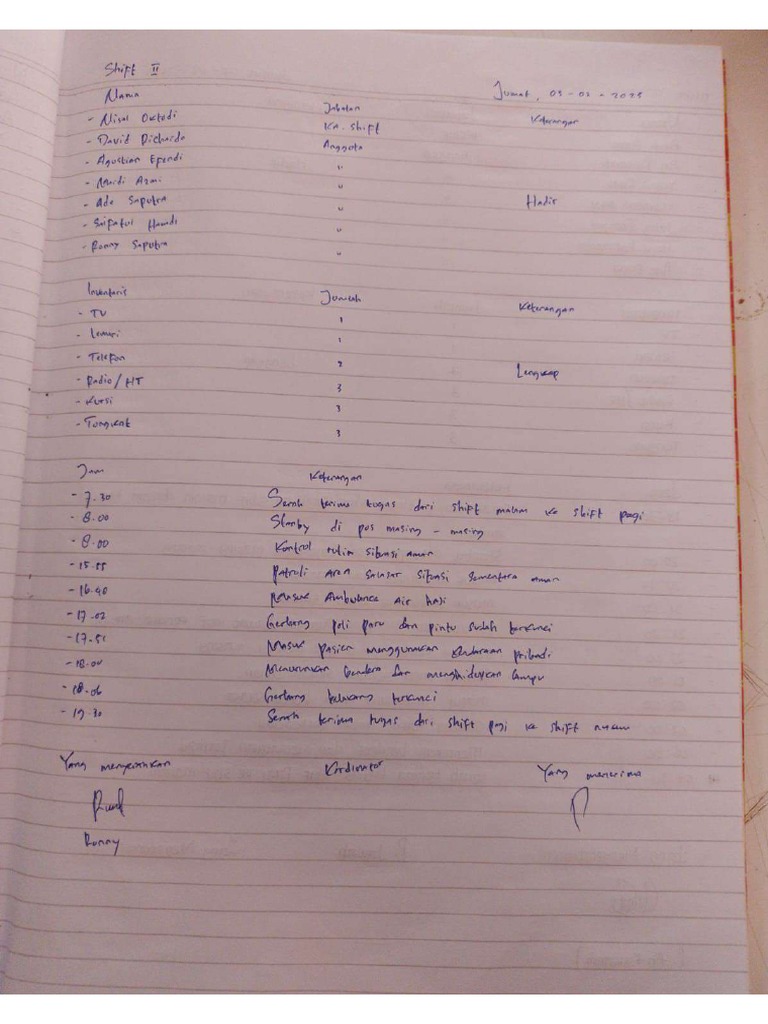 Shift II
Jumat, 09-02-2025
Nama Jabatan Keterangan
- Nisal Oktedi Ka. Shift
- David Dichaido Anggota
- Agustian Efendi "
- Mardi Azmi "
- Ade Saputra " Hadir
- Saifatul Hamdi "
- Ronny Saputra "
Inventaris Jumlah Keterangan
- TV 1
- Lemari 1
- Telefon 2 Lengkap
- Radio/HT 3
- Kursi 3
- Tongkat 3
Jam Keterangan
- 7.30 Serah terima tugas dari shift malam ke shift pagi
- 8.00 Stanby di pos masing - masing
- 8.00 Kontrol rutin situasi aman
- 15.55 Patroli area selasar situasi sementara aman
- 16.40 Masuk Ambulance Air haji
- 17.02 Gerbang poli paru dan pintu sudah terkunci
- 17.51 Masuk pasien menggunakan kendaraan pribadi
- 18.00 Menurunkan bendera dan menghidupkan lampu
- 18.06 Gerbang belakang terkunci
- 19.30 Serah terima tugas dari shift pagi ke shift malam
Yang menyerahkan Kordinator Yang menerima
Ronny